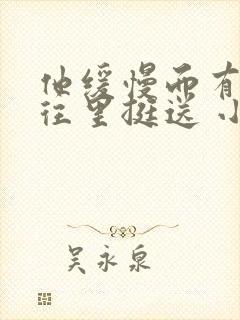 他缓慢而有
往里挺送 小
吴永泉